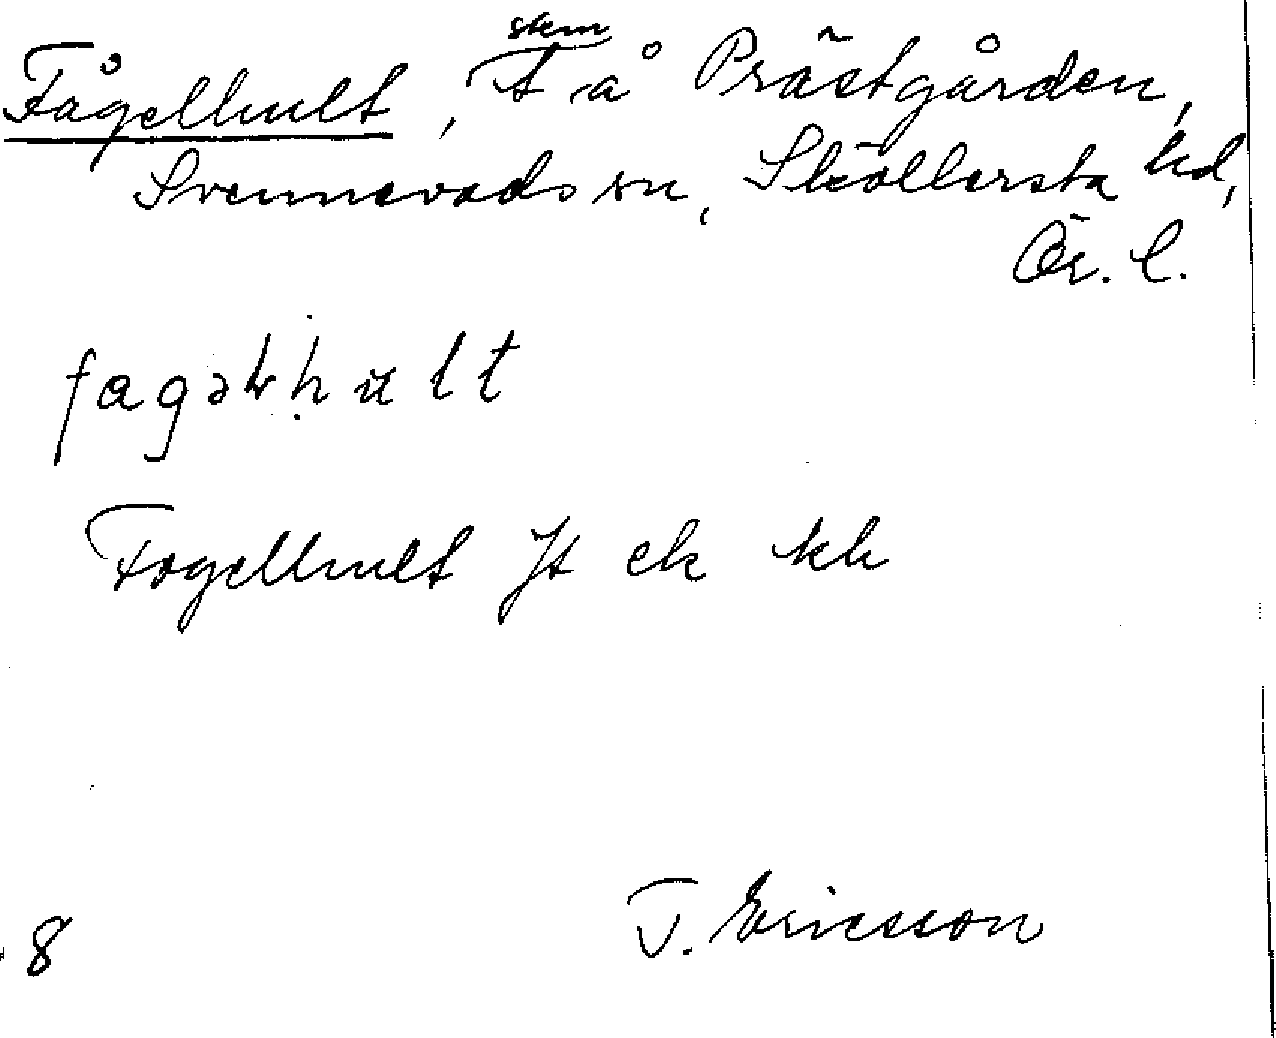 stem
Fågelhult, T å Prästgården,
Svennevads sn, Sköllersta hd,
Ör. l.
Fogelhult Jt ek kk
8 T. Ericsson